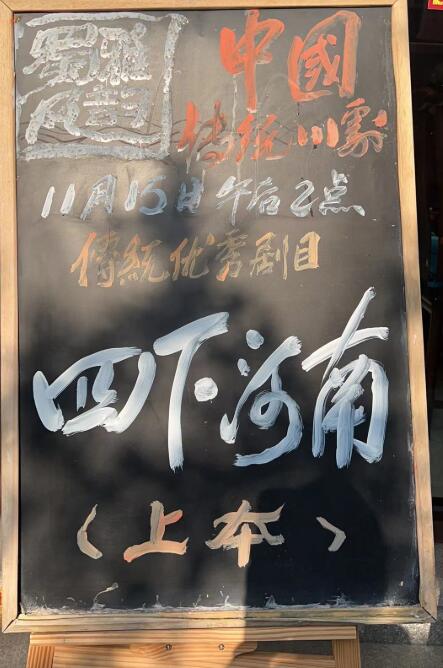 蜀风雅韵
中國
傳统川劇
11月15日午后2点
傳統优秀剧目
四下河南
〈上本〉